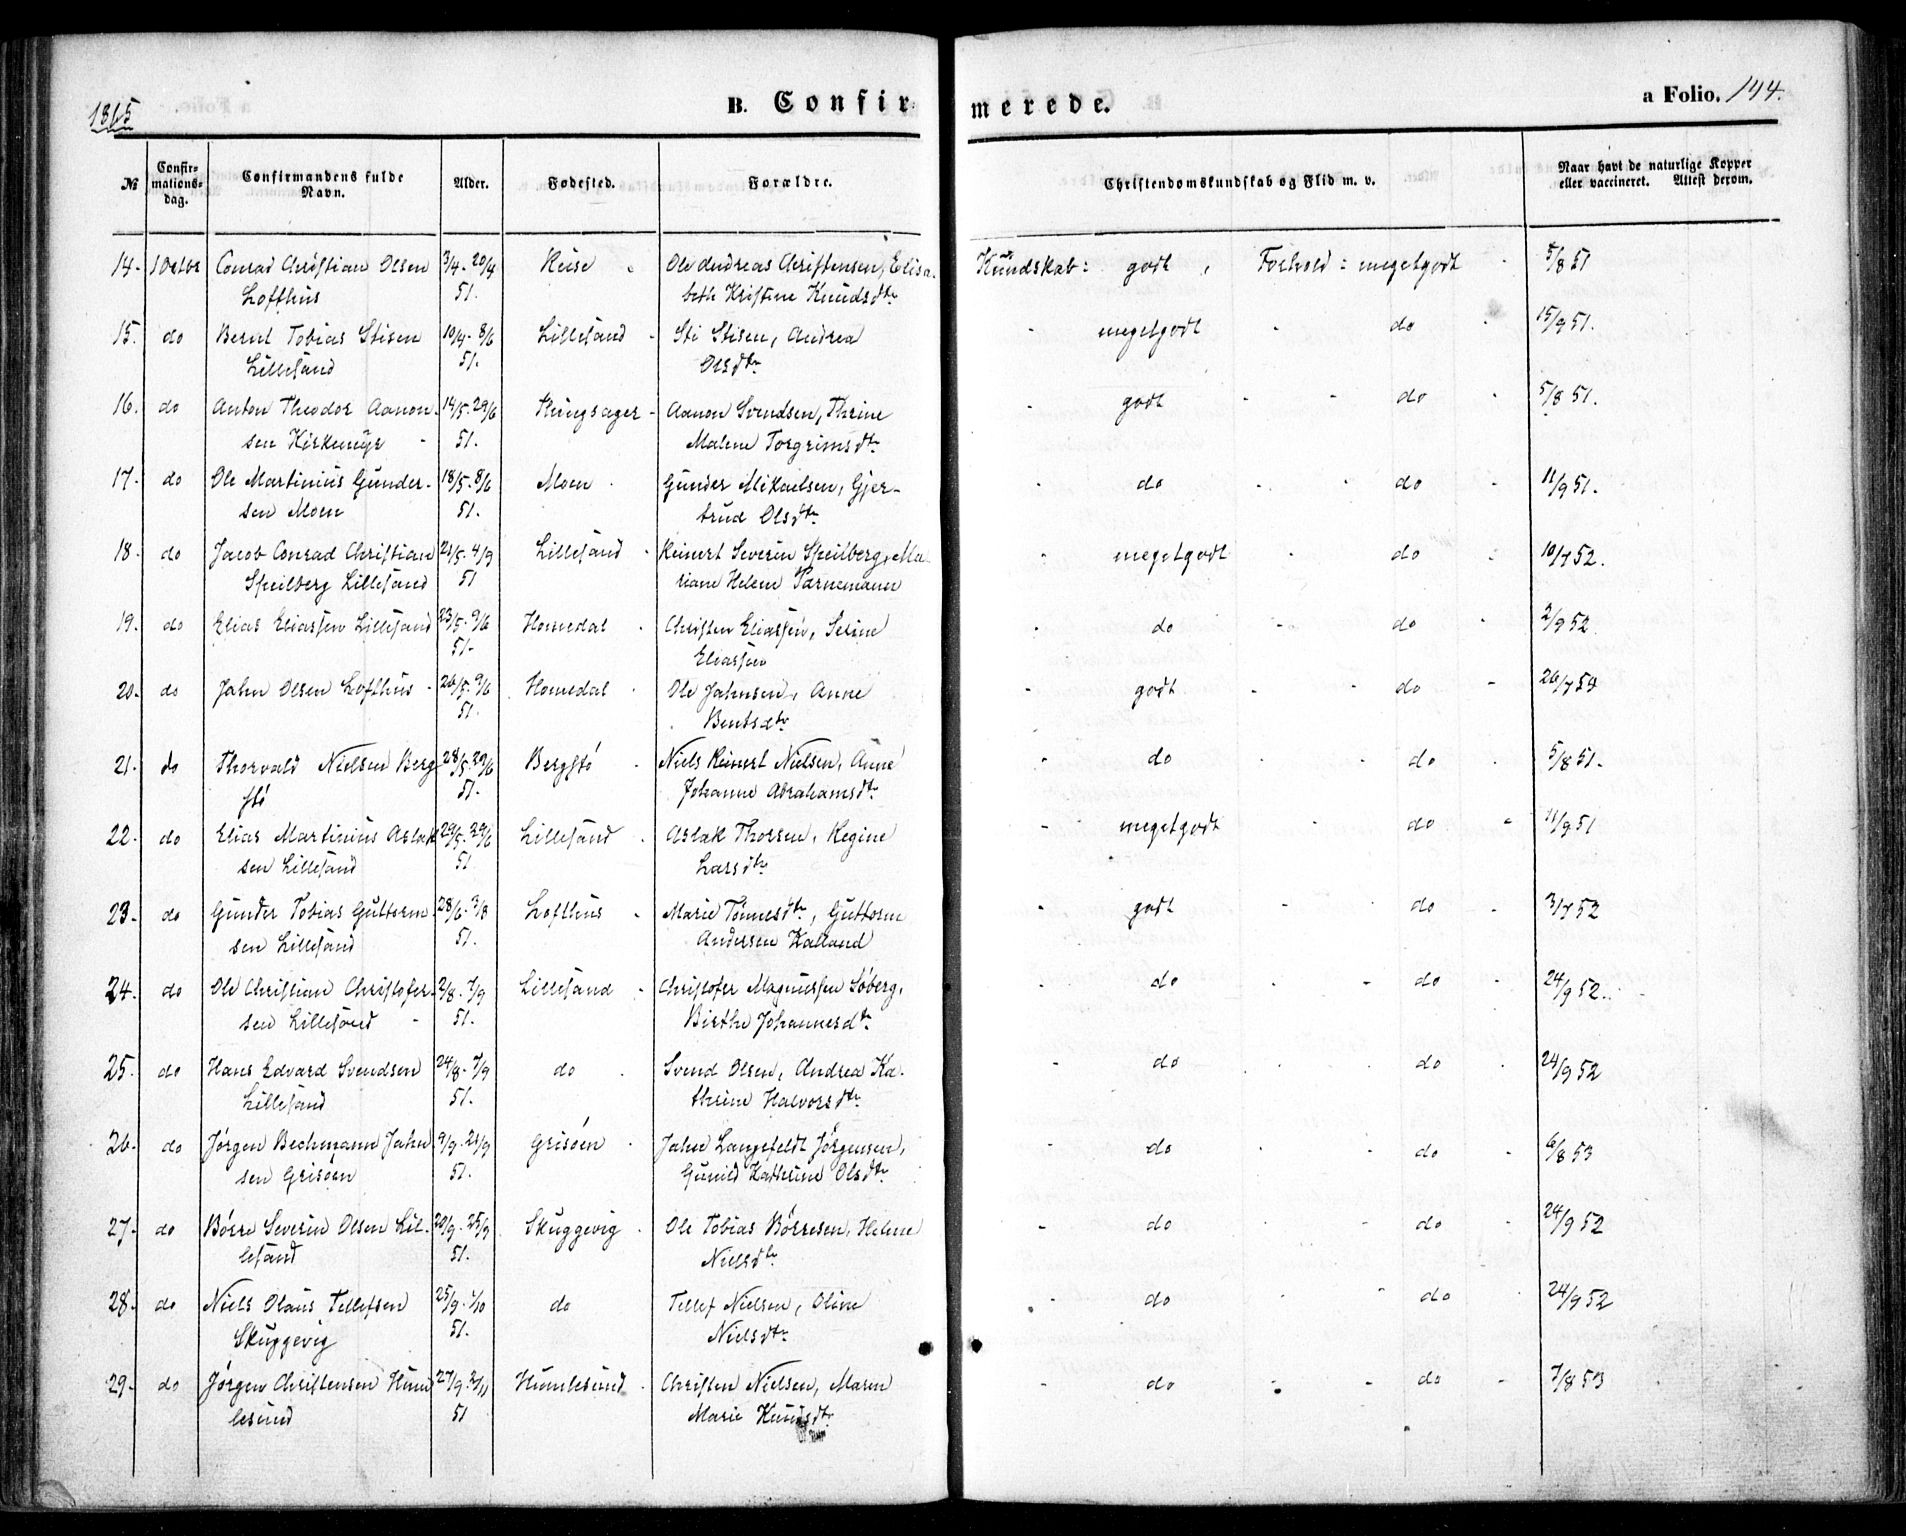 1865
B. Confirmerede.
a Folio. 144.
№
Confirmationsdag.
Confirmandens fulde Navn.
Alder.
Fødested.
Forældre.
Christendomskundskab og Flid m. v.
Naar havt de naturlige Kopper eller vaccineret. Attest derom.
14. 1 Octor Conrad Christian Olsen 3/4. 20/4 Heise Ole Andreas Christensen, Elisa- Kundskab: godt, Forhold: megetgodt 5/8 51
Lofthus 51. beth Kristine Knudsdtr
15. do Bernt Tobias Stisen 10/4. 8/6 Lillesand Sti Stisen, Andrea megetgodt do 15/9 51.
Lillesand 51. Olsdtr
16. do Anton Theodor Aanon- 14/5. 29/6 Kungsager Aanon Svendsen, Thrine godt do 5/8 51.
sen Kirkemyr 51. Malene Torgrimsdtr
17. do Ole Martinius Gunder- 18/5. 8/6 Moen Gunder Mikaelsen, Gjer- do do 11/9 51.
sen Moen 51. trud Olsdtr
18. do Jacob Conrad Christian 21/5. 4/9 Lillesand Reinert Severin Speilberg, Ma- megetgodt do 10/7 52.
Speilberg Lillesand 51 riane Helene Parnemann
19. do Elias Eliassen Lillesand 23/5. 9/6 Homedal Christen Eliassen, Serine do do 2/9 52
51. Eliassen
20. do Jahn Olsen Lofthus 26/5. 9/6 Homedal Ole Jahnsen, Anne godt do 26/7
51. Bentsdtr
21. do Thorvald Nielsen Berg- 28/5. 29/6 Bergstø Niels Reinert Nielsen, Anne do do 5/8 51.
stø 51. Johanne Abrahamsdtr
22. do Elias Martinius Aslak- 29/5. 29/6 Lillesand Aslak Thorsen, Regine megetgodt do 11/9 51
sen Lillesand 51 Larsdtr
23. do Gunder Tobias Guttorm- 28/6. 3/8 Lofthus Marie Tønnesdtr, Guttorm godt do 3/7 52
sen Lillesand 51. Andersen Kalland
24. do Ole Christian Christofer- 2/8. 7/9 Lillesand Christofer Magnussen Søberg, do do 24/9 52.
sen Lillesand 51. Birthe Johannesdtr
25. do Hans Edvard Svendsen 24/8. 7/9 do Svend Olsen, Andrea Ka- do do 24/9 52
Lillesand 51. thrine Halvorsdtr
26. do Jørgen Bechmann Jahn- 9/9. 21/9 Grisøen Jahn Langefeldt Jørgensen, do do 6/8 53
sen Grisøen 51. Gunild Kathrine Olsdtr
27. do Børre Severin Olsen Lil- 20/9. 25/9 Skuggevig Ole Tobias Børresen, Helene do do 24/9 52
lesand 51. Nielsdtr
28. do Niels Olaus Tellefsen 25/9. 1/10 do Tellef Nielsen, Oline do do 24/9 52
Skuggevig 51. Nielsdtr
29. do Jørgen Christensen Hum- 27/9. 2/11 Humlesund Christen Nielsen, Maren do do 7/8 53
lesund 51 Marie Knudsdtr